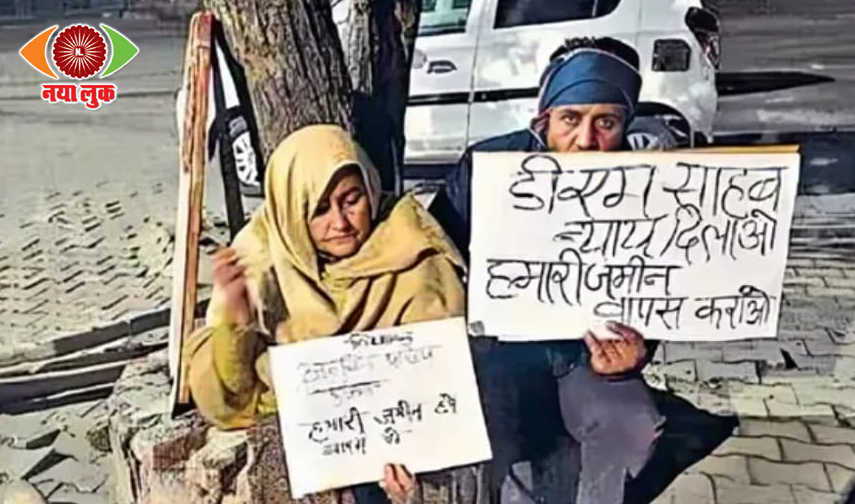 नया लुक
डीएम साहब
न्याय दिलाओ
हमारी जमीन
वापस कराओ
हमारी जमीन हमें
वापस दो